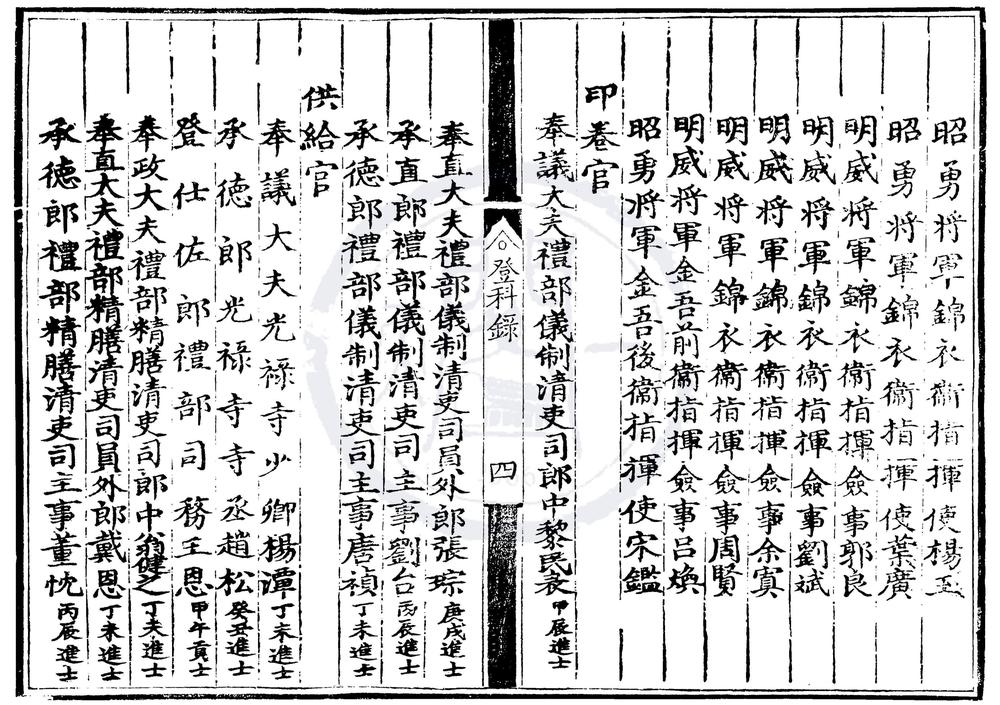 昭勇將軍錦衣衛指揮使楊玉
昭勇將軍錦衣衛指揮使葉廣
明威將軍錦衣衛指揮僉事郭良
明威將軍錦衣衛指揮僉事劉斌
明威將軍錦衣衛指揮僉事余寘
明威將軍錦衣衛指揮僉事周賢
明威將軍金吾前衛指揮僉事呂煥
昭勇將軍金吾後衛指揮使宋鑑
印卷官
奉議大夫禮部儀制清吏司郎中黎民表甲辰進士
登科錄 四
奉直大夫禮部儀制清吏司員外郎張琮庚戌進士
承直郎禮部儀制清吏司主事劉台丙辰進士
承德郎禮部儀制清吏司主事唐禎丁未進士
供給官
奉議大夫光祿寺少卿楊潭丁未進士
承德郎光祿寺寺丞趙松癸丑進士
登仕佐郎禮部司務王恩甲午貢士
奉政大夫禮部精膳清吏司郎中翁健之丁未進士
奉直大夫禮部精膳清吏司員外郎戴恩丁未進士
承德郎禮部精膳清吏司主事董忱丙辰進士